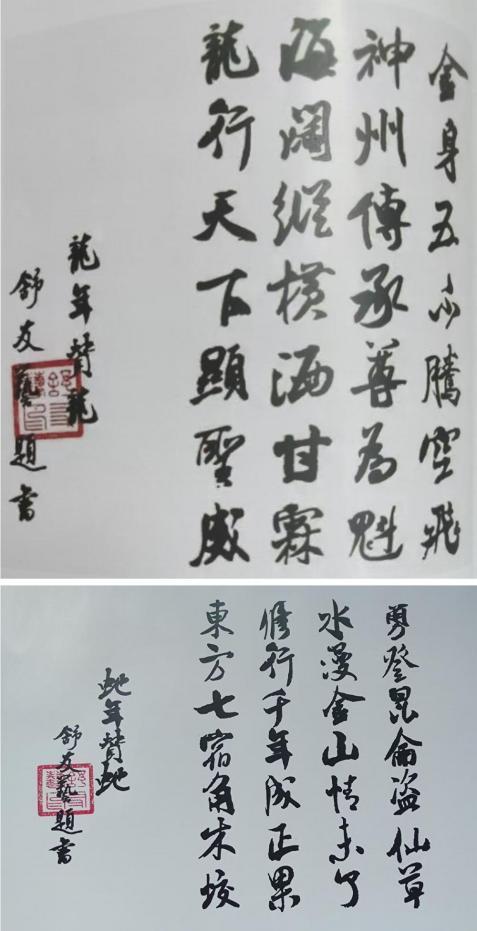 金身五爪騰空飛
神州傳承尊為魁
海闊縱橫洒甘霖
龍行天下顯聖威
龍年贊龍
舒友藝題書
勇登昆侖盜仙草
水漫金山情未了
修行千年成正果
東方七宿角木蛟
虵年贊虵
舒友藝題書